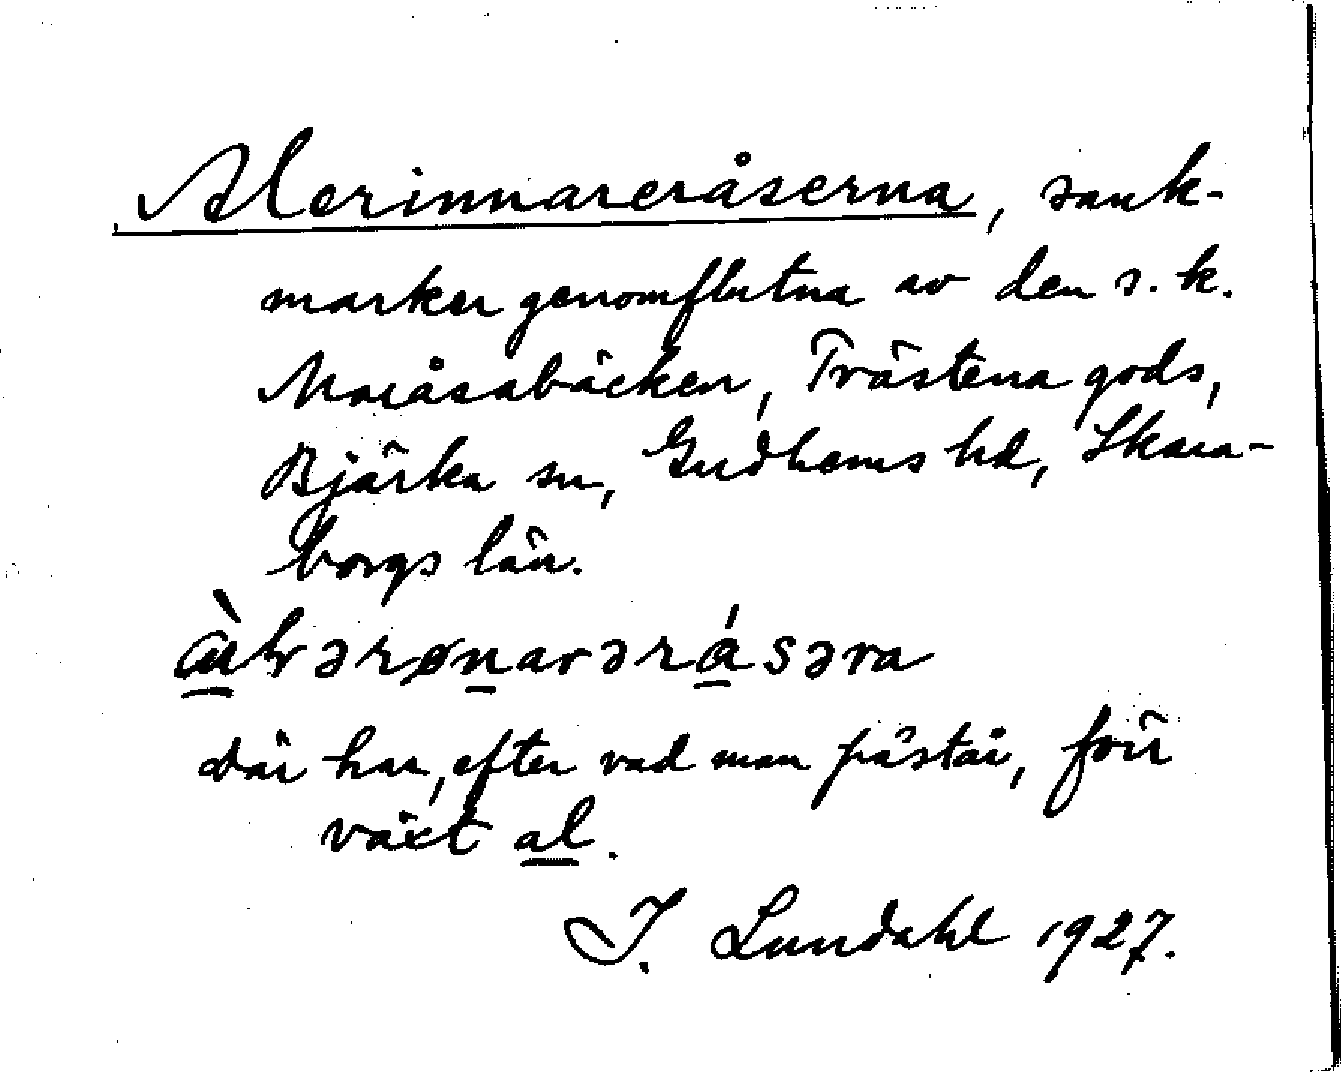 Alerinnareråserna, sank-
marker genomflutna av den s. k.
Maråsabäcken, Trästena gods,
Bjärka sn, Gudhems hd, Skara-
borgs län.
där har, efter vad man påstår, förr
växt al.
I. Lundahl 1927.